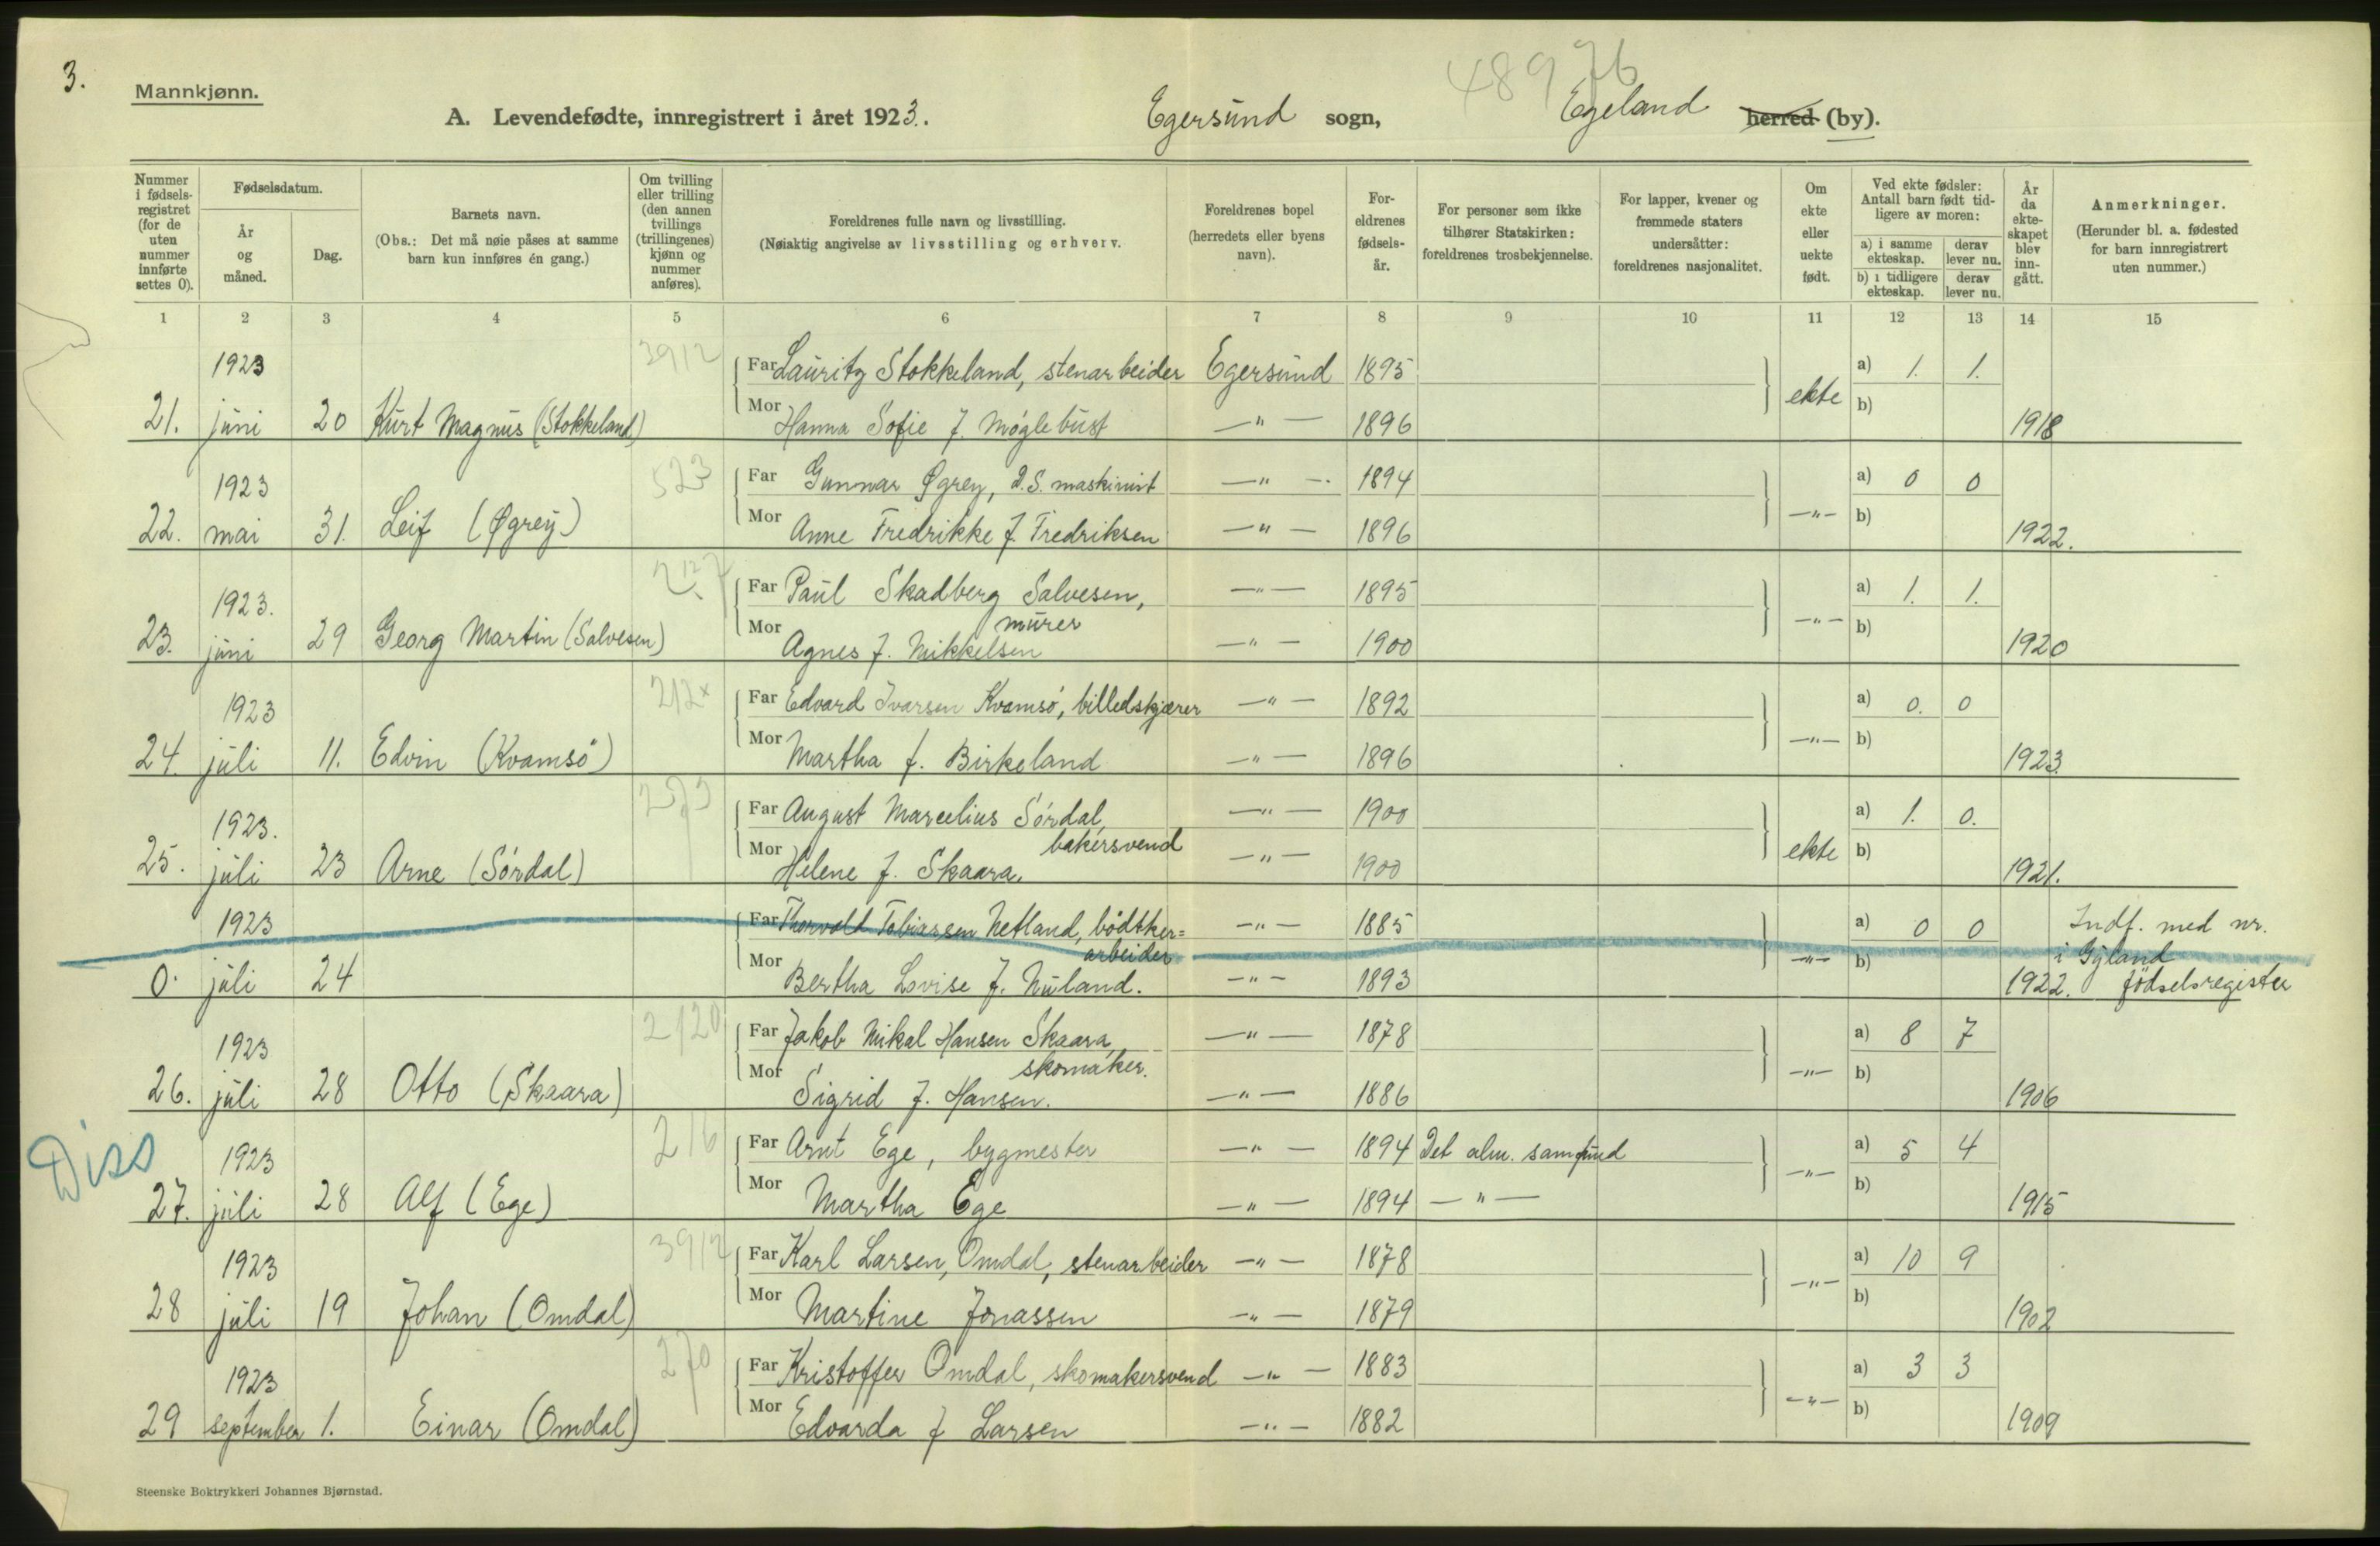 3.
48976
Mannkjønn.
A. Levendefødte, innregistrert i året 1923. Egersund sogn, Egeland herred (by).
Nummer i fødsels-registret (for de uten nummer innførte settes 0).
Fødselsdatum.
År og måned.
Dag.
Barnets navn.
(Obs.: Det må nøie påses at samme barn kun innføres én gang.)
Om tvilling eller trilling (den annen tvillings (trillingenes) kjønn og nummer anføres).
Foreldrenes fulle navn og livsstilling.
(Nøiaktig angivelse av livsstilling og erhverv.
Foreldrenes bopel (herredets eller byens navn).
For-eldrenes fødsels-år.
For personer som ikke tilhører Statskirken: foreldrenes trosbekjennelse.
For lapper, kvener og fremmede staters undersåtter: foreldrenes nasjonalitet.
Om ekte eller uekte født.
Ved ekte fødsler: Antall barn født tid-ligere av moren:
a) i samme ekteskap. derav lever nu.
b) i tidligere ekteskap. derav lever nu.
År da ekte-skapet blev inn-gått.
Anmerkninger.
(Herunder bl. a. fødested for barn innregistrert uten nummer.)
1 2 3 4 5 6 7 8 9 10 11 12 13 14 15
1923 3912 Far Lauritz Stokkeland, stenarbeider Egersund 1895 ekte a) 1. 1.
21. juni 20 Kurt Magnus (Stokkeland) Mor Hanna Sofie f. Møglebust —"— 1896 b) 1918
1923 523 Far Gunnar Øgrey, D.S. maskinist —"—. 1894 —"— a) 0 0
22. mai 31. Leif (Øgrey) Mor Anne Fredrikke f. Fredriksen —"— 1896 b) 1922.
1923. Far Paul Skadberg Salvesen, —"— 1895 —"— a) 1. 1.
murer
23. juni 29 Georg Martin (Salvesen) Mor Agnes f. Mikkelsen —"— 1900 b) 1920
1923 212x Far Edvard Ivarsen Kvamsö, billedskjærer —"— 1892 —"— a) 0. 0
24. juli 11. Edvin (Kvamsö) Mor Martha f. Birkeland —"— 1896 b) 1923.
1923. Far August Marcelius Sördal, —"— 1900 ekte a) 1. 0.
bakersvend
25. juli 23 Arne (Sördal) Mor Helene f. Skaara. —"— 1900 b) 1921.
1923 Far Thorvald Tobiassen Netland, bödtker= —"— 1885 —"— a) 0 0 Indf. med nr.
arbeider i Gyland
0. juli 24 Mor Bertha Lovise f. Nuland. —"— 1893 b) 1922. födselsregister
1923 2120 Far Jakob Mikal Hansen Skaara, —"— 1878 —"— a) 8 7
skomaker.
26. juli 28 Otto (Skaara) Mor Sigrid f. Hansen. —"— 1886 b) 1906
Diss
1923 216 Far Arnt Ege, bygmester —"— 1894 Det alm. samfund —"— a) 5 4
27. juli 28 Alf (Ege) Mor Martha Ege —"— 1894 —"— b) 1915
1923 3912 Far Karl Larsen, Omdal, stenarbeider —"— 1878 —"— a) 10 9
28 juli 19 Johan (Omdal) Mor Martine Jonassen —"— 1879 b) 1902
1923 270 Far Kristoffer Omdal, skomakersvend —"— 1883 —"— a) 3 3
29 september 1. Einar (Omdal) Mor Edvarda f Larsen —"— 1882 b) 1909
Steenske Boktrykkeri Johannes Bjørnstad.